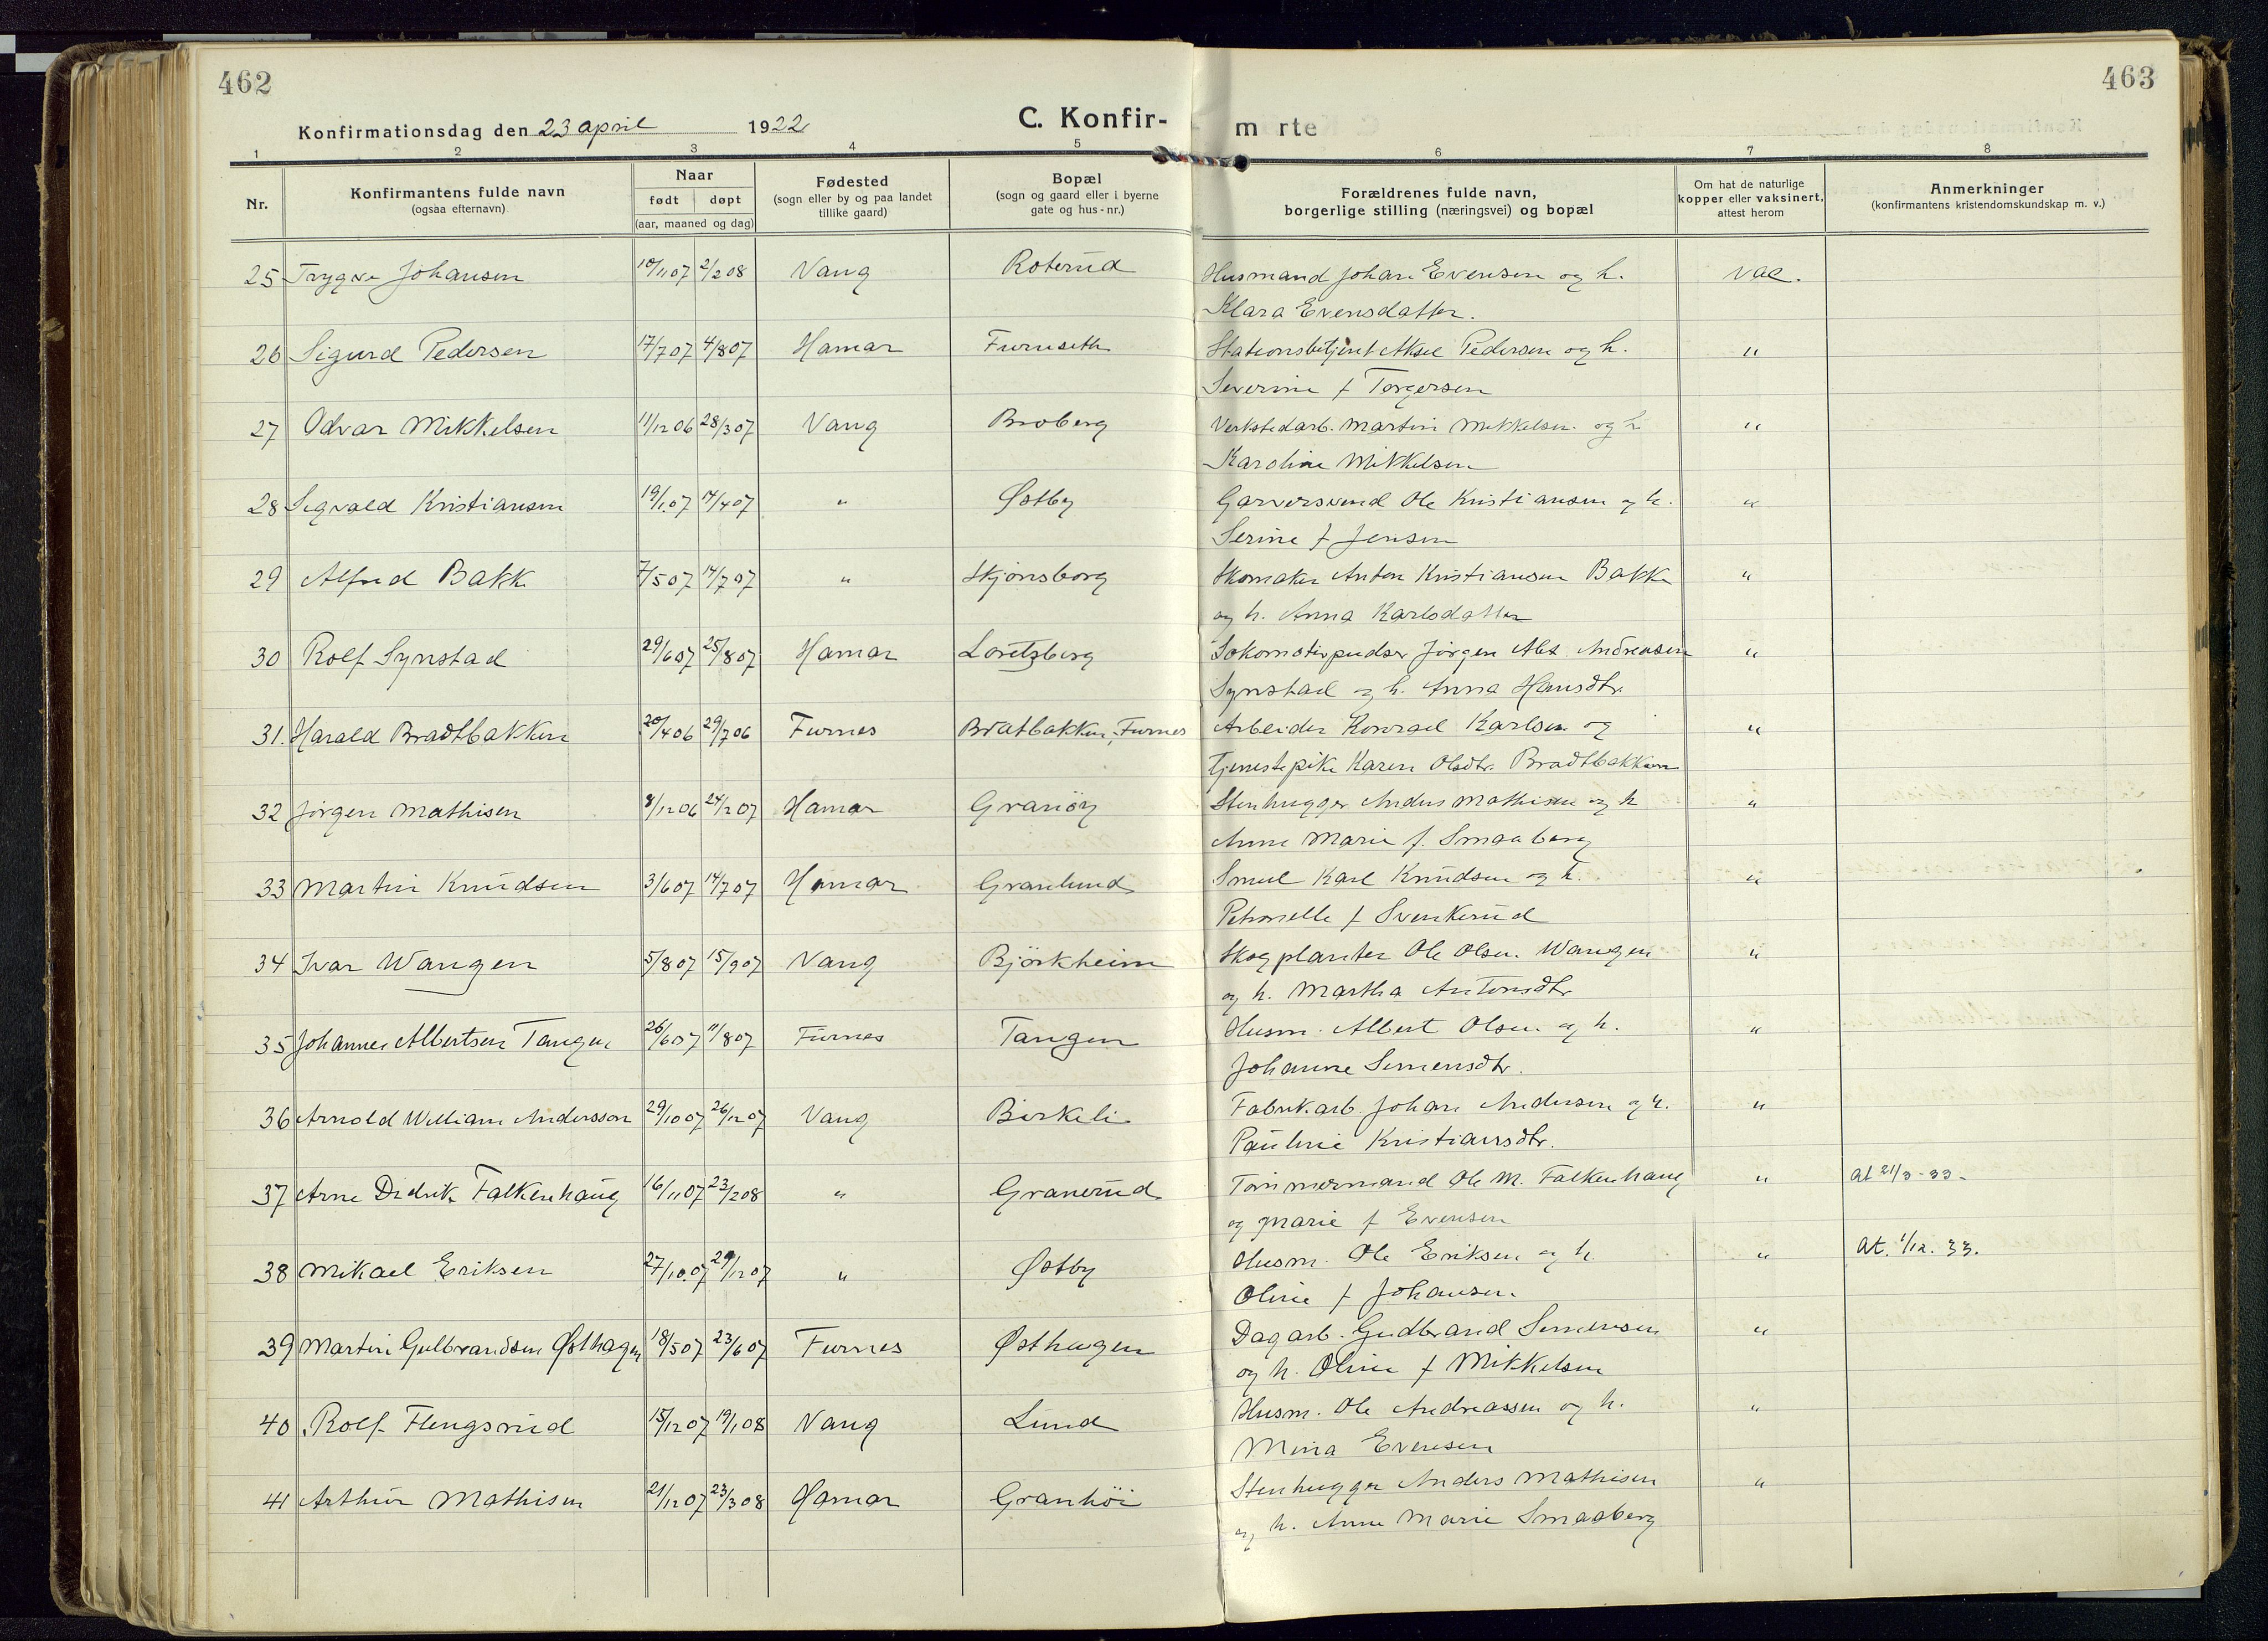 462
463
Konfirmationsdag den 23 april 1922
C. Konfirmerte
1 2 3 4 5 6 7 8
Nr.
Konfirmantens fulde navn
(ogsaa efternavn)
Naar
født døpt
(aar, maaned og dag)
Fødested
(sogn eller by og paa landet
tillike gaard)
Bopæl
(sogn og gaard eller i byerne
gate og hus-nr.)
Forældrenes fulde navn,
borgerlige stilling (næringsvei) og bopæl
Om hat de naturlige
kopper eller vaksinert,
attest herom
Anmerkninger
(konfirmantens kristendomskundskap m. v.)
25 Trygve Johansen 10/11 07 2/2 08 Vang Roterud Husmand Johan Evensen og h. vac.
Klara Evensdatter.
26 Sigurd Pedersen 17/7 07 4/8 07 Hamar Furuseth Stationsbetjent Aksel Pedersen og h. "
Severine f Torgersen
27 Odvar Mikkelsen 11/12 06 28/3 07 Vang Broberg Verkstedarb. Martin Mikkelsen og h "
Karoline Mikkelsen
28 Sigvald Kristiansen 19/1 07 14/4 07 " Østby Garversvend Ole Kristiansen og h. "
Serine f Jensen
29 Alfred Bakk 7/5 07 14/7 07 " Skjønsborg Skomaker Anton Kristiansen Bakke "
og h. Anna Karlsdatter
30 Rolf Synstad 29/6 07 25/8 07 Hamar Loritzberg Lokomotivpudser Jørgen Alet. Andreasen "
Synstad og h. Anna Hansdtr.
31. Harald Bradtbakken 20/4 06 29/7 06 Furnes Bratbakken, Furnes Arbeider Konrad Karlsen og "
tjenestepike Karen Olsdtr. Bradtbakken
32 Jørgen Mathisen 8/12 06 24/2 07 Hamar Granöy Stenhugger Anders Mathisen og h "
Anne Marie f. Smaaberg
33 Martin Knudsen 3/6 07 14/7 07 Hamar Granlund Smed Karl Knudsen og h. "
Petronelle f Svenkerud
34 Ivar Wangen 5/8 07 15/9 07 Vang Björkheim Skogplanter Ole Olsen Wangen "
og h. Martha Antonsdtr
35 Johannes Albertsen Tangen 26/6 07 11/8 07 Furnes Tangen Husm. Albert Olsen og h. "
Johanne Simensdtr.
36 Arnold William Andersson 29/10 07 26/12 07 Vang Birkeli Fabrikarb. Johan Andersen og h. "
Pauline Kristiansdtr.
37 Arne Didrik Falkenhaug 16/11 07 23/2 08 " Granerud Tömmermand Ole M. Falkenhaug " at 21/3-33.
og Marie f Evensen
38 Mikael Eriksen 27/10.07 29/12 07 " Østby Husm. Ole Eriksen og h. " at. 1/12. 33.
Oline f Johansen.
39 Martin Gulbrandsen Østhagen 18/5 07 23/6 07 Furnes Østhagen Dagarb. Gudbrand Simensen "
og h. Oline f Mikkelsen
40 Rolf Flengsrud 15/12 07 19/1 08 Vang Lund Husm. Ole Andreassen og h. "
Mina Evensen
41 Arthur Mathisen 21/12 07 23/3 08 Hamar Granhöi Stenhugger Anders Mathisen "
og h. Anne Marie Smaaberg